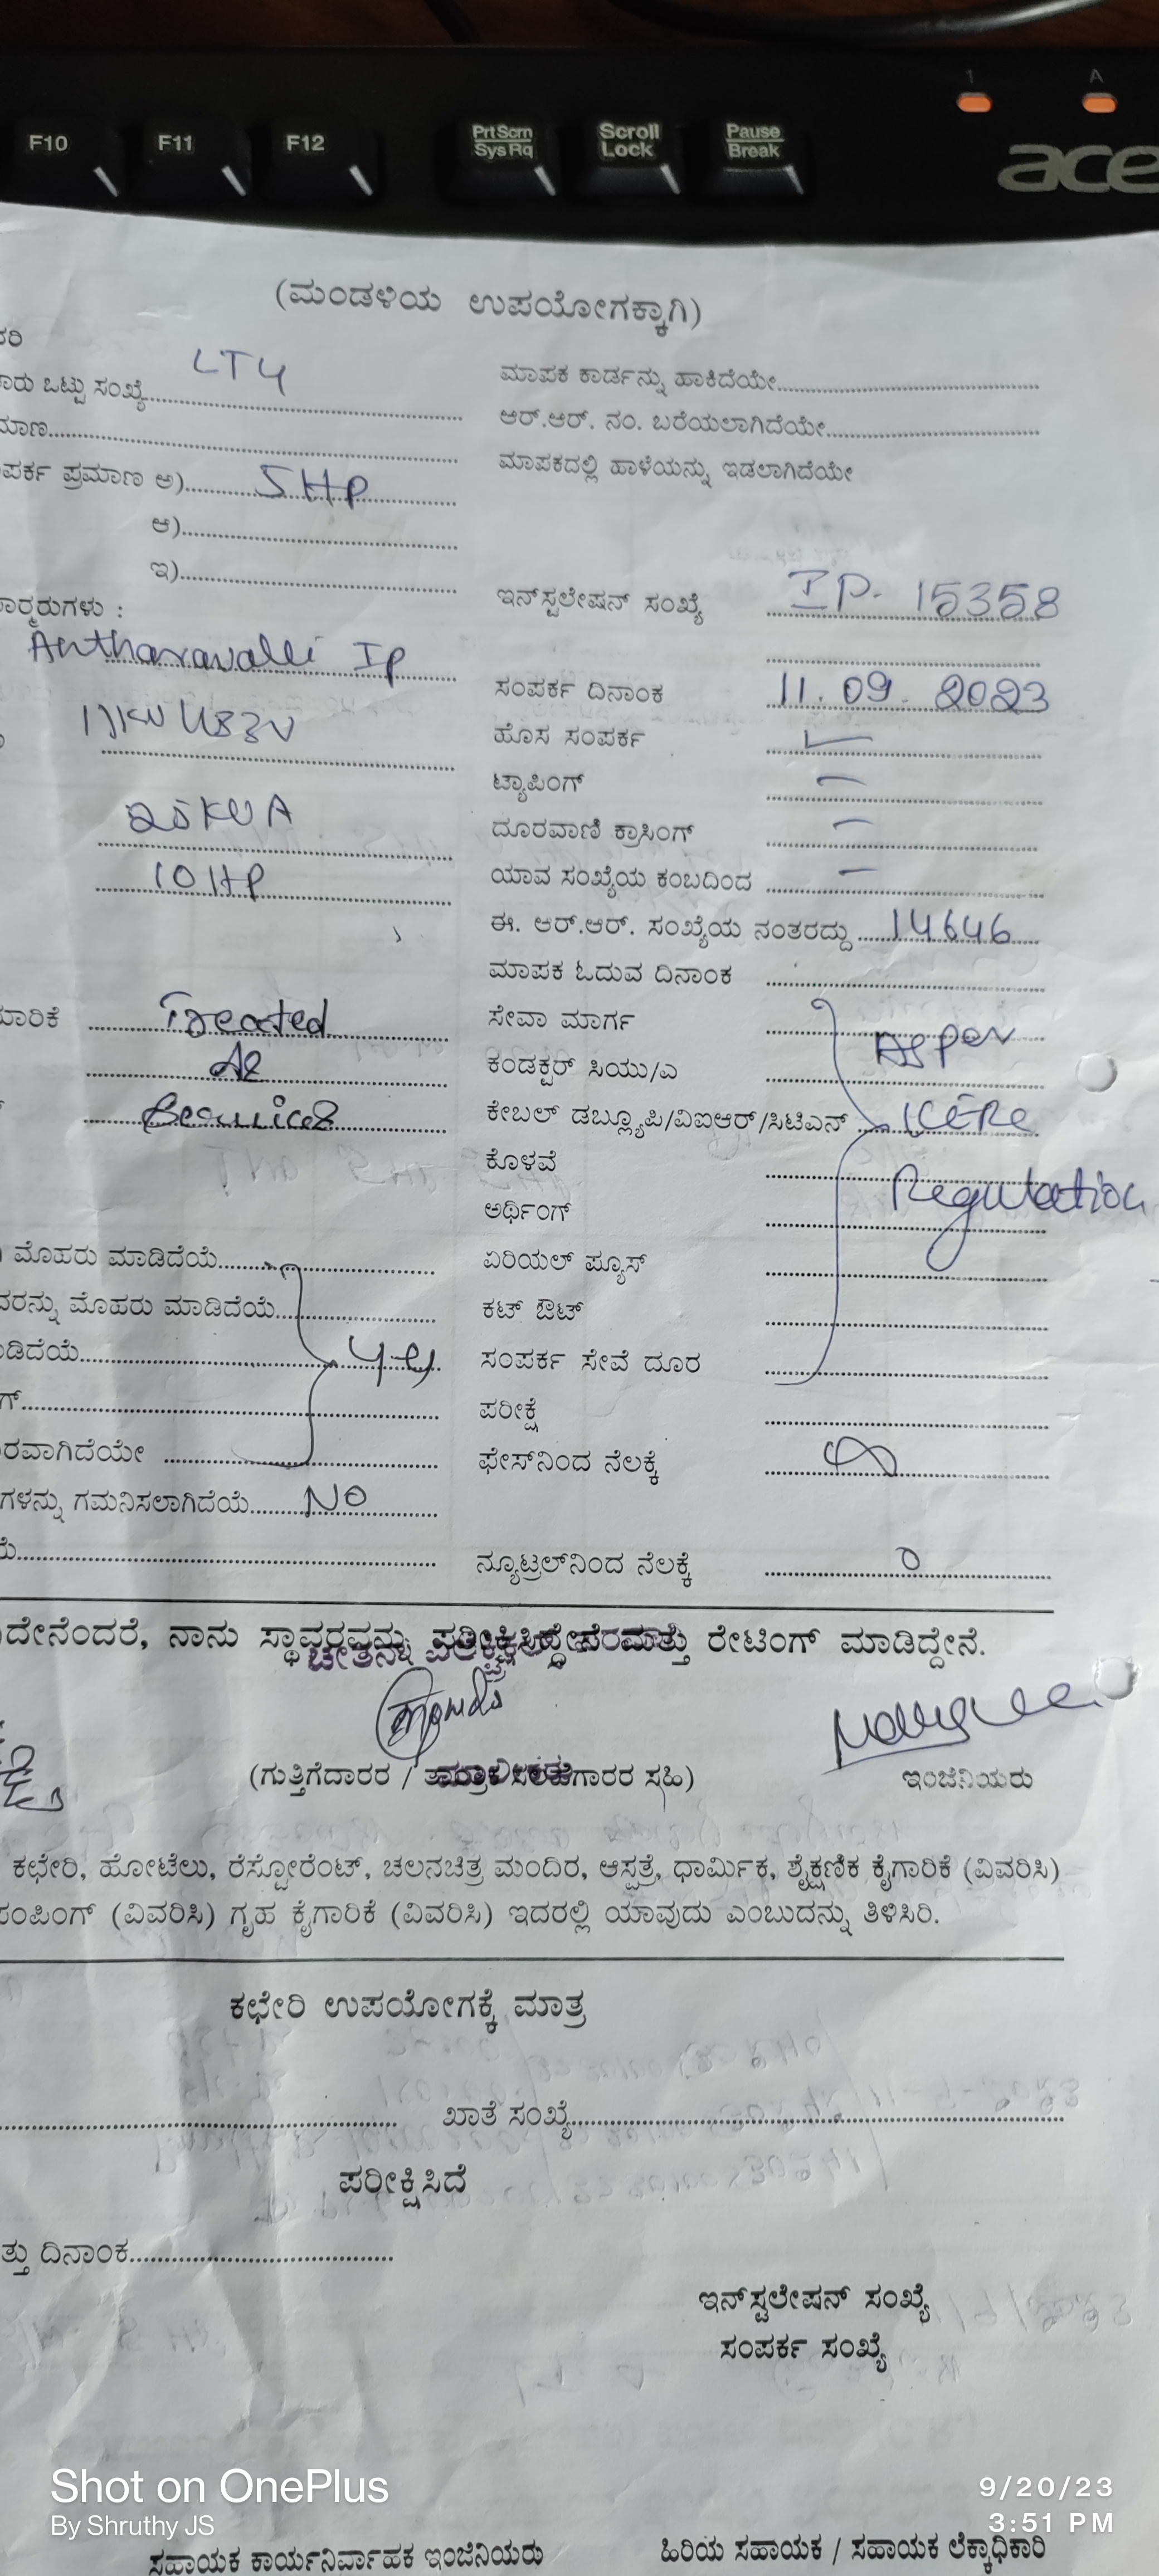 F10 F11 F12 PrtScrn SysRq Scroll Lock Pause Break 1 A
ace
(ಮಂಡಳಿಯ ಉಪಯೋಗಕ್ಕಾಗಿ)
LT4
ಒಟ್ಟು ಸಂಖ್ಯೆ
ಮಾಪಕ ಕಾರ್ಡನ್ನು ಹಾಕಿದೆಯೇ
ಆರ್.ಆರ್. ನಂ. ಬರೆಯಲಾಗಿದೆಯೇ
ಪ್ರಮಾಣ ಅ) 5HP
ಮಾಪಕದಲ್ಲಿ ಹಾಳೆಯನ್ನು ಇಡಲಾಗಿದೆಯೇ
ಆ)
ಇ)
ಇನ್‌ಸ್ಟಲೇಷನ್ ಸಂಖ್ಯೆ IP. 15358
Antharavalli Ip
ಸಂಪರ್ಕ ದಿನಾಂಕ 11.09.2023
ಹೊಸ ಸಂಪರ್ಕ
ಟ್ಯಾಪಿಂಗ್ –
25KVA
ದೂರವಾಣಿ ಕ್ರಾಸಿಂಗ್ –
10HP
ಯಾವ ಸಂಖ್ಯೆಯ ಕಂಬದಿಂದ –
ಈ. ಆರ್.ಆರ್. ಸಂಖ್ಯೆಯ ನಂತರದ್ದು 14646
ಮಾಪಕ ಓದುವ ದಿನಾಂಕ
Treated
ಸೇವಾ ಮಾರ್ಗ
As per
ಕಂಡಕ್ಟರ್ ಸಿಯು/ಎ
ಕೇಬಲ್ ಡಬ್ಲ್ಯೂಪಿ/ವಿಐಆರ್/ಸಿಟಿಎನ್ KERC
ಕೊಳವೆ
Regulation
ಅರ್ಥಿಂಗ್
ಮೊಹರು ಮಾಡಿದೆಯೆ
ಏರಿಯಲ್ ಫ್ಯೂಸ್
ಮೊಹರು ಮಾಡಿದೆಯೆ
ಕಟ್ ಔಟ್
ಸಂಪರ್ಕ ಸೇವೆ ದೂರ
ಪರೀಕ್ಷೆ
ಫೇಸ್‌ನಿಂದ ನೆಲಕ್ಕೆ
ಗಮನಿಸಲಾಗಿದೆಯೆ NO
ನ್ಯೂಟ್ರಲ್‌ನಿಂದ ನೆಲಕ್ಕೆ 0
ನಾನು ಸ್ಥಾವರವನ್ನು ಪರೀಕ್ಷಿಸಿದ್ದೇನೆ ಮತ್ತು ರೇಟಿಂಗ್ ಮಾಡಿದ್ದೇನೆ.
(ಗುತ್ತಿಗೆದಾರರ / ಸಹಿ)
ಇಂಜಿನಿಯರು
ಕಛೇರಿ, ಹೋಟೆಲು, ರೆಸ್ಟೋರೆಂಟ್, ಚಲನಚಿತ್ರ ಮಂದಿರ, ಆಸ್ಪತ್ರೆ, ಧಾರ್ಮಿಕ, ಶೈಕ್ಷಣಿಕ ಕೈಗಾರಿಕೆ (ವಿವರಿಸಿ)
(ವಿವರಿಸಿ) ಗೃಹ ಕೈಗಾರಿಕೆ (ವಿವರಿಸಿ) ಇದರಲ್ಲಿ ಯಾವುದು ಎಂಬುದನ್ನು ತಿಳಿಸಿರಿ.
ಕಛೇರಿ ಉಪಯೋಗಕ್ಕೆ ಮಾತ್ರ
ಖಾತೆ ಸಂಖ್ಯೆ
ಪರೀಕ್ಷಿಸಿದೆ
ದಿನಾಂಕ
ಇನ್‌ಸ್ಟಲೇಷನ್ ಸಂಖ್ಯೆ
ಸಂಪರ್ಕ ಸಂಖ್ಯೆ
Shot on OnePlus
By Shruthy JS
9/20/23
3:51 PM
ಸಹಾಯಕ ಕಾರ್ಯನಿರ್ವಾಹಕ ಇಂಜಿನಿಯರು
ಹಿರಿಯ ಸಹಾಯಕ / ಸಹಾಯಕ ಲೆಕ್ಕಾಧಿಕಾರಿ